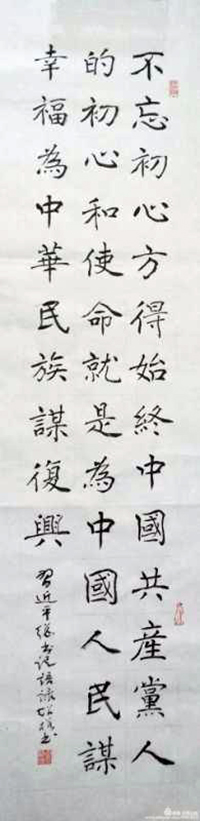 不忘初心方得始終中國共産黨人
的初心和使命就是為中國人民謀
幸福為中華民族謀復興
習近平總书记語录